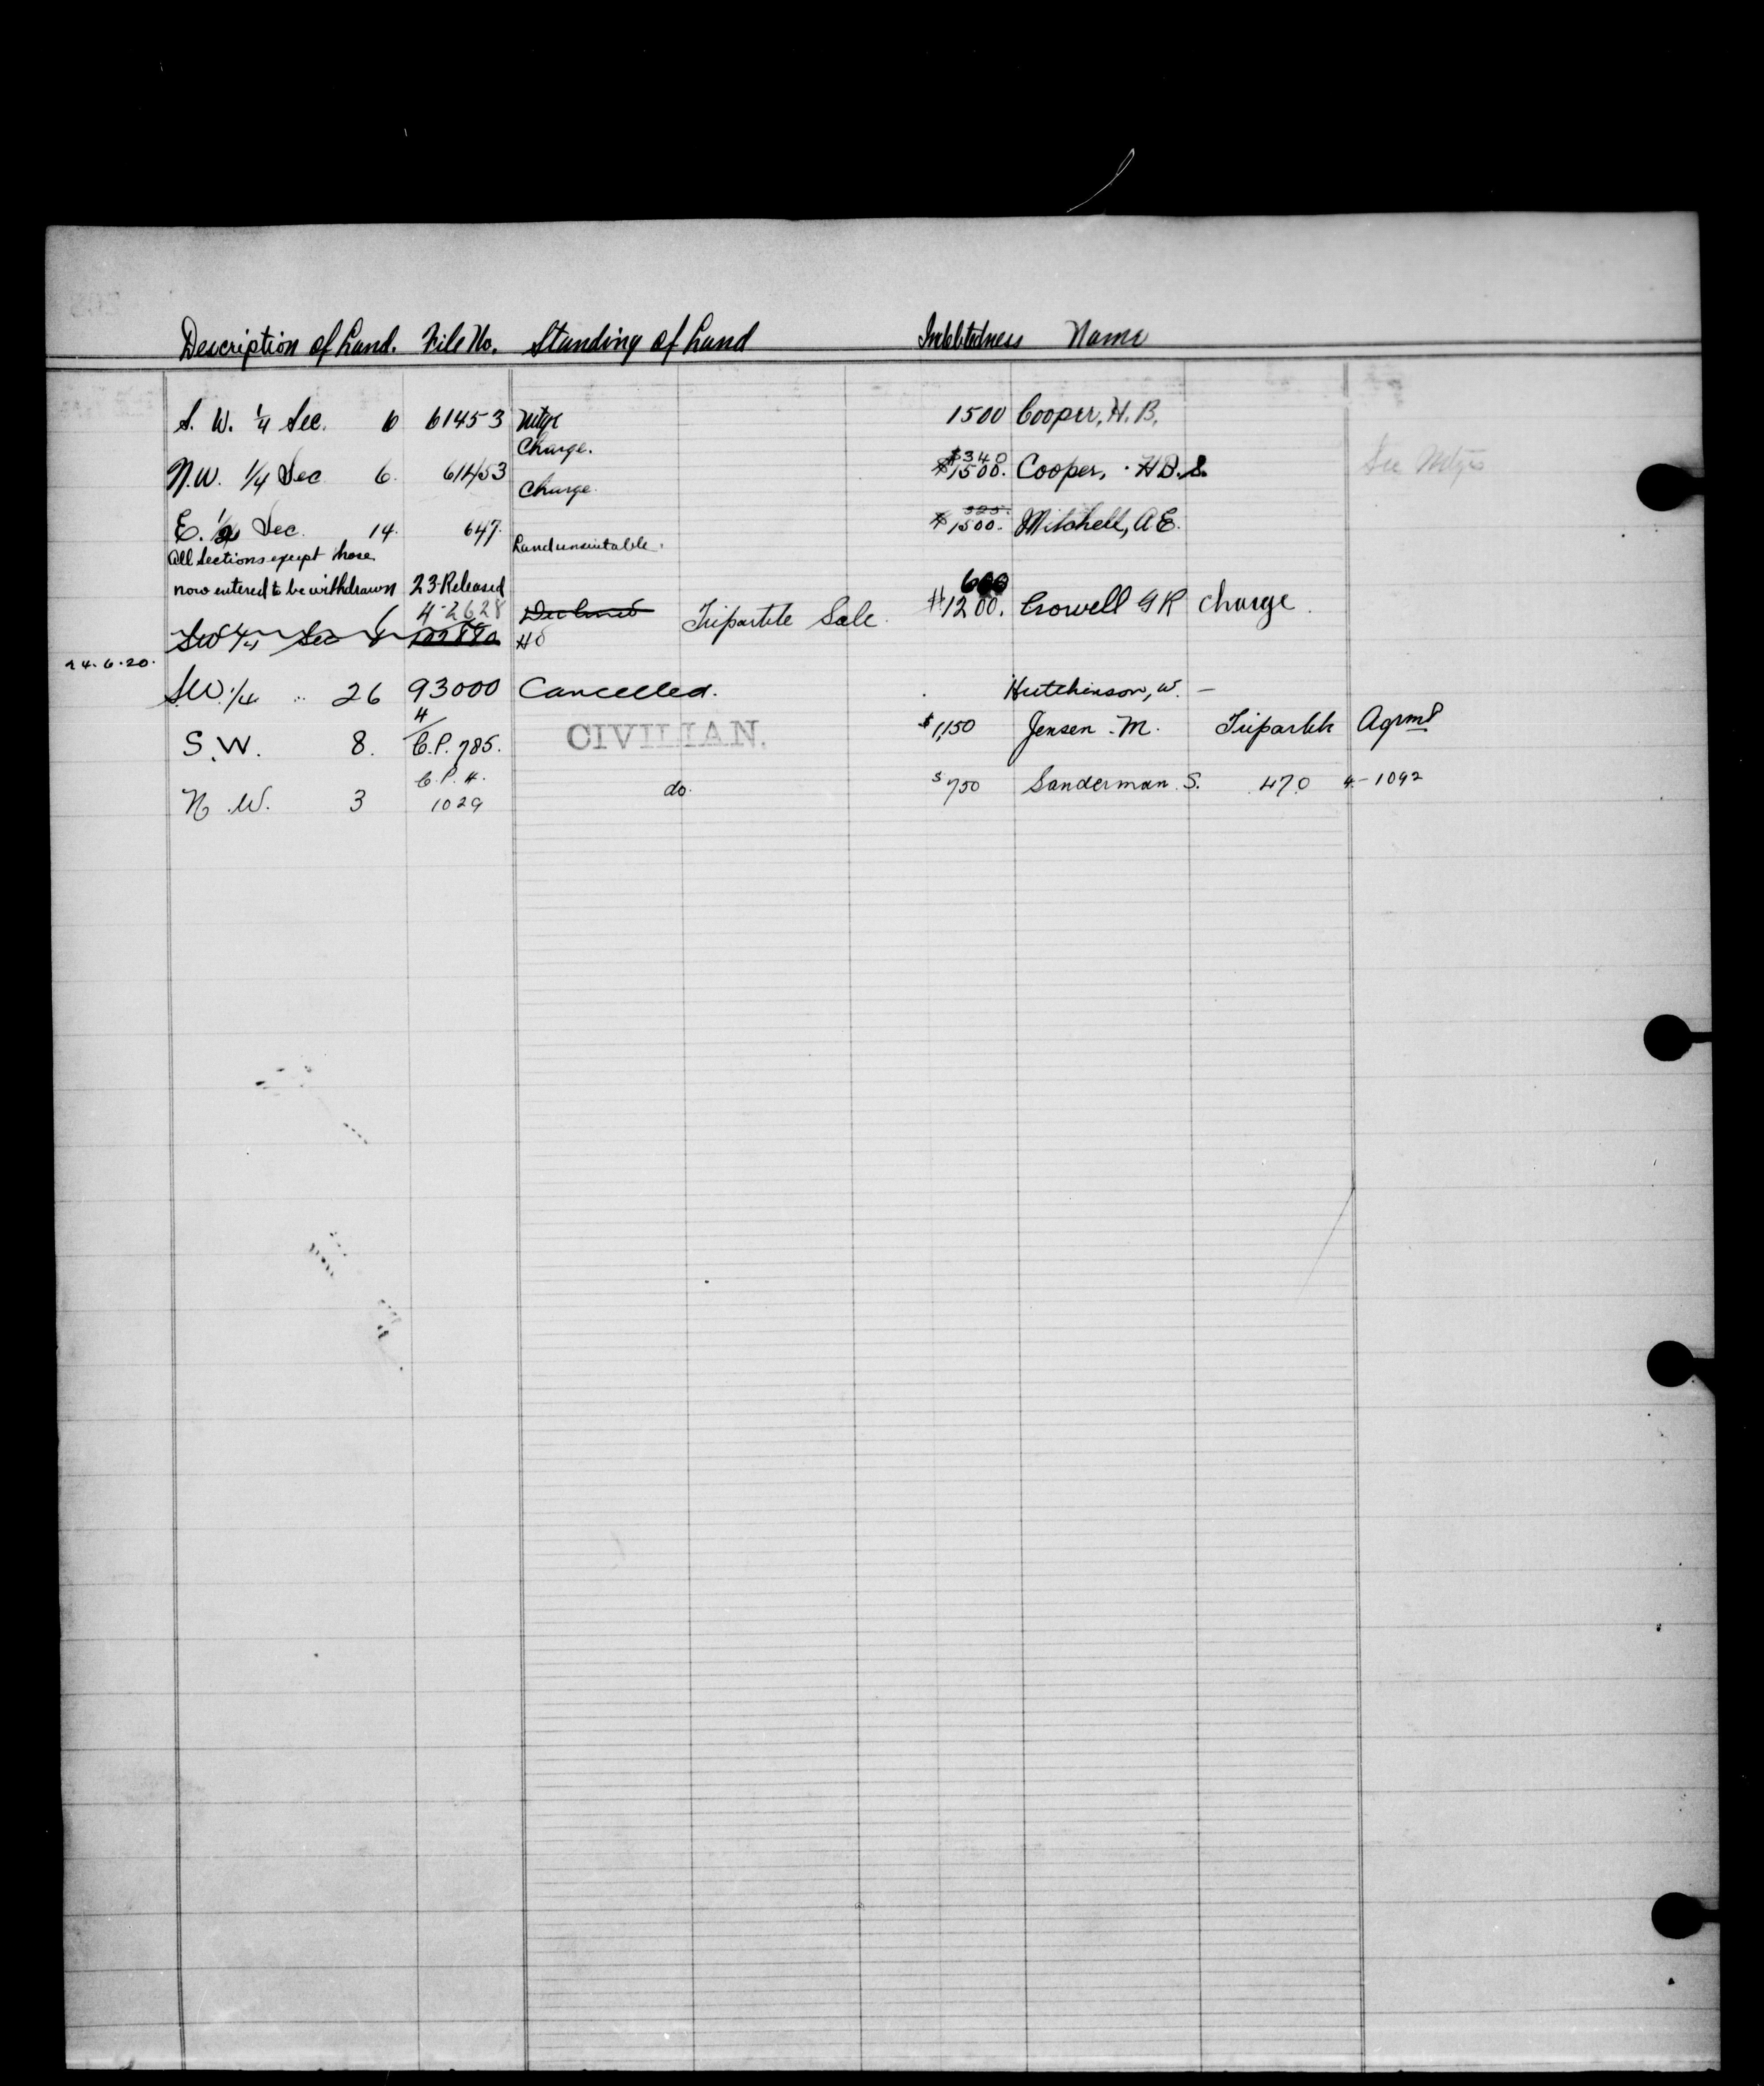 Description of Land. File No. Standing of Land Indebtedness Name
S. W. 1/4 Sec. 6 61453 Mtge 1500 Cooper, H. B.
Charge. $340
N.W. 1/4 Sec 6. 61453 Charge. $1500. Cooper, H B. S. See Mtges
325.
E. 1/2 Sec. 14. 647. Land unsuitable. $1500. Mitchell, A E.
All Sections except those
now entered to be withdrawn 23-Released 600
4-2628 Declined Tripartite Sale. $1200. Crowell G R Charge.
SW 1/4 Sec 6
24.6.20.
S.W. 1/4 " 26 93000 Cancelled. Hutchinson, W. —
4/
S.W. 8. C.P. 785. CIVILIAN. $1,150 Jensen. M. Tripartite Agrmt
C.P. 4.
N.W. 3 1029 do. $750 Sanderman. S. 470 4-1092